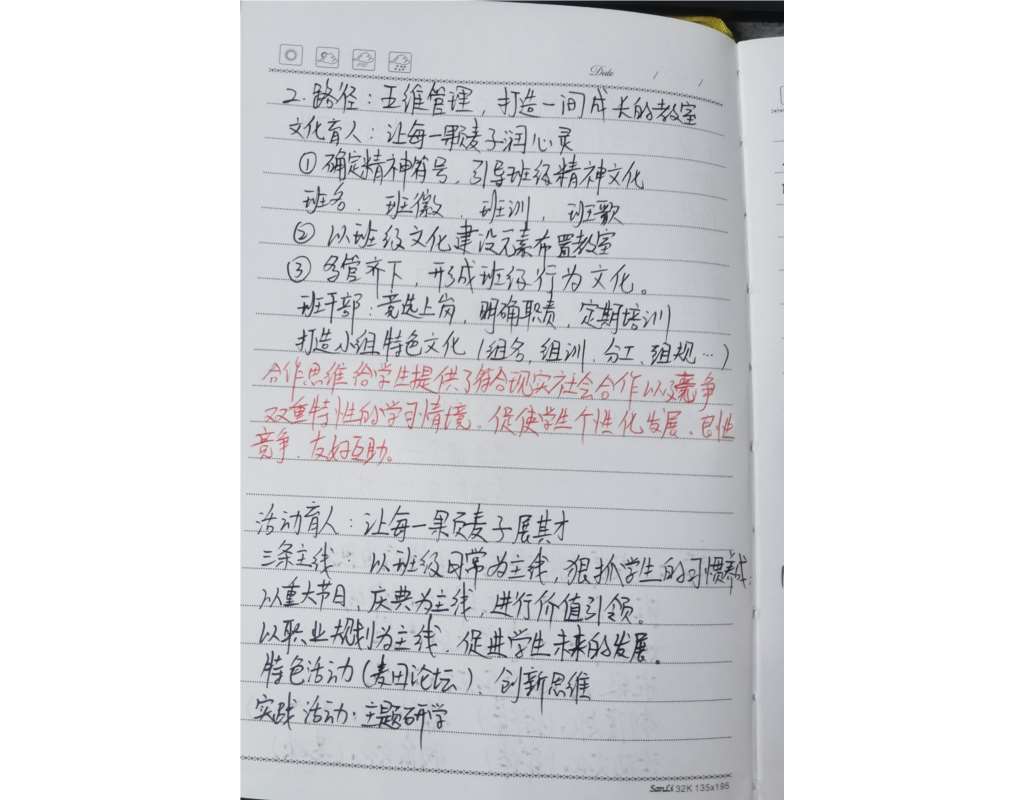 Date / /
2. 路径：五维管理，打造一间成长的教室
文化育人：让每一颗麦子润心灵
① 确定精神符号，引导班级精神文化
班名、班徽、班训、班歌
② 以班级文化建设元素布置教室
③ 多管齐下，形成班级行为文化。
班干部：竞选上岗，明确职责，定期培训
打造小组特色文化（组名、组训、分工、组规…）
合作思维给学生提供了符合现实社会合作以及竞争
双重特性的学习情境，促使学生个性化发展、良性
竞争、友好互助。
活动育人：让每一颗麦子展其才
三条主线：以班级日常为主线，狠抓学生的习惯养成
以重大节日、庆典为主线，进行价值引领。
以职业规划为主线，促进学生未来的发展。
特色活动（麦田论坛）、创新思维
实践活动·主题研学
SanLi 32K 135x195